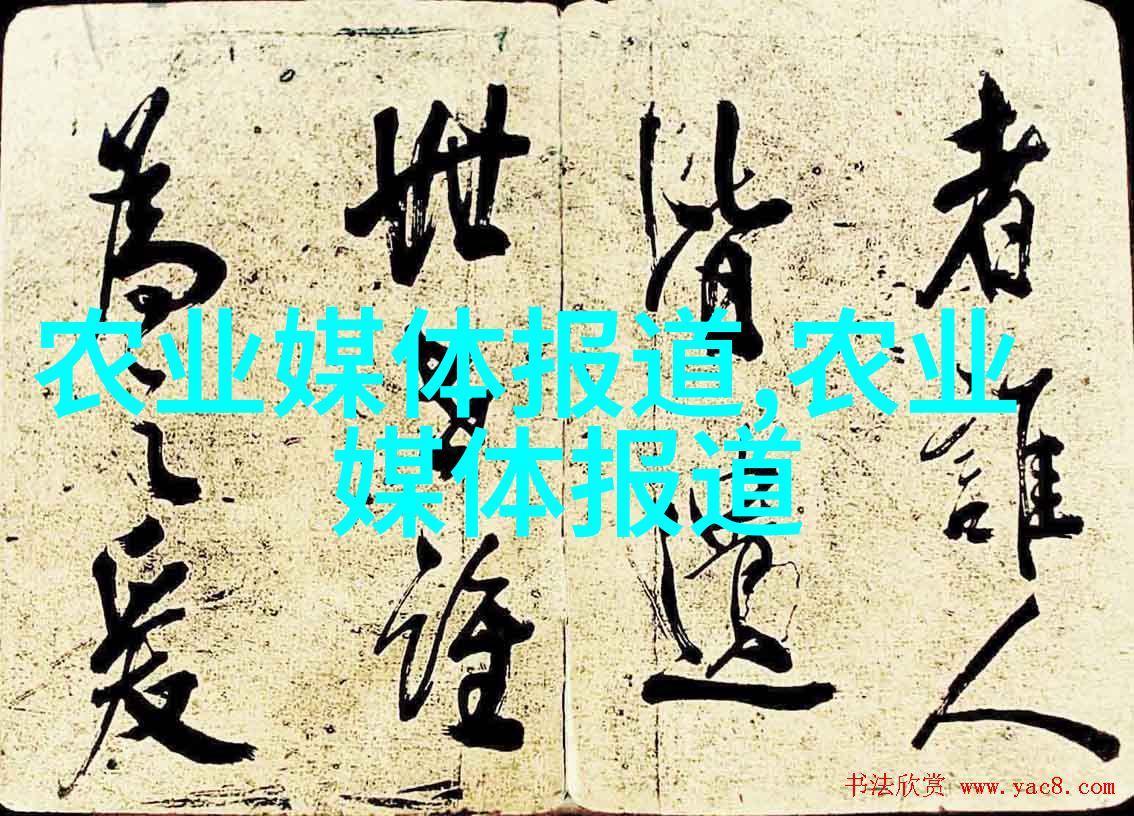 农业媒体报道,农业
媒体报道
者誰人
皆道
世誰
為之
书法欣赏 www.yac8.com